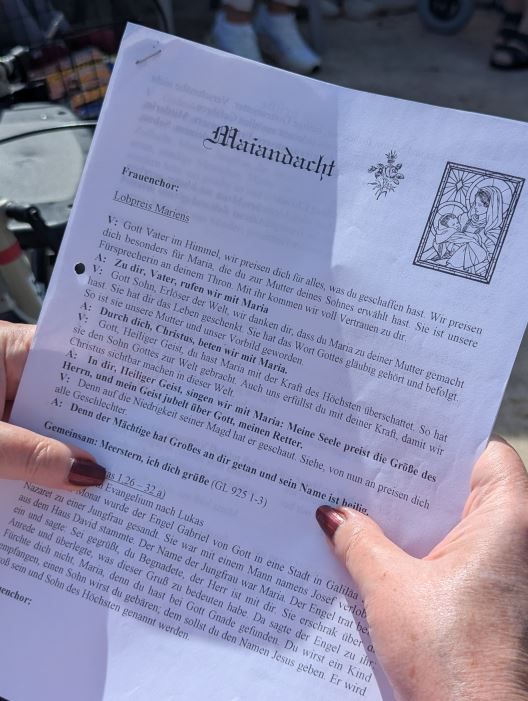 Maiandacht
Frauenchor:
Lobpreis Mariens
V: Gott Vater im Himmel, wir preisen dich für alles, was du geschaffen hast. Wir preisen
dich besonders für Maria, die du zur Mutter deines Sohnes erwählt hast. Sie ist unsere
Fürsprecherin an deinem Thron. Mit ihr kommen wir voll Vertrauen zu dir.
A: Zu dir, Vater, rufen wir mit Maria
V: Gott Sohn, Erlöser der Welt, wir danken dir, dass du Maria zu deiner Mutter gemacht
hast. Sie hat dir das Leben geschenkt. Sie hat das Wort Gottes gläubig gehört und befolgt.
So ist sie unsere Mutter und unser Vorbild geworden.
A: Durch dich, Christus, beten wir mit Maria.
V: Gott, Heiliger Geist, du hast Maria mit der Kraft des Höchsten überschattet. So hat
sie den Sohn Gottes zur Welt gebracht. Auch uns erfüllst du mit deiner Kraft, damit wir
Christus sichtbar machen in dieser Welt.
A: In dir, Heiliger Geist, singen wir mit Maria: Meine Seele preist die Größe des
Herrn, und mein Geist jubelt über Gott, meinen Retter.
V: Denn auf die Niedrigkeit seiner Magd hat er geschaut. Siehe, von nun an preisen dich
alle Geschlechter.
A: Denn der Mächtige hat Großes an dir getan und sein Name ist heilig.
Gemeinsam: Meerstern, ich dich grüße (GL 925 1-3)
1,26 – 32 a)
Evangelium nach Lukas
Monat wurde der Engel Gabriel von Gott in eine Stadt in Galiläa
Nazaret zu einer Jungfrau gesandt. Sie war mit einem Mann namens Josef verlobt
aus dem Haus David stammte. Der Name der Jungfrau war Maria. Der Engel trat bei
ein und sagte: Sei gegrüßt, du Begnadete, der Herr ist mit dir. Sie erschrak über
Anrede und überlegte, was dieser Gruß zu bedeuten habe. Da sagte der Engel zu ihr:
Fürchte dich nicht, Maria, denn du hast bei Gott Gnade gefunden. Du wirst ein Kind
empfangen, einen Sohn wirst du gebären; dem sollst du den Namen Jesus geben. Er wird
sein und Sohn des Höchsten genannt werden.